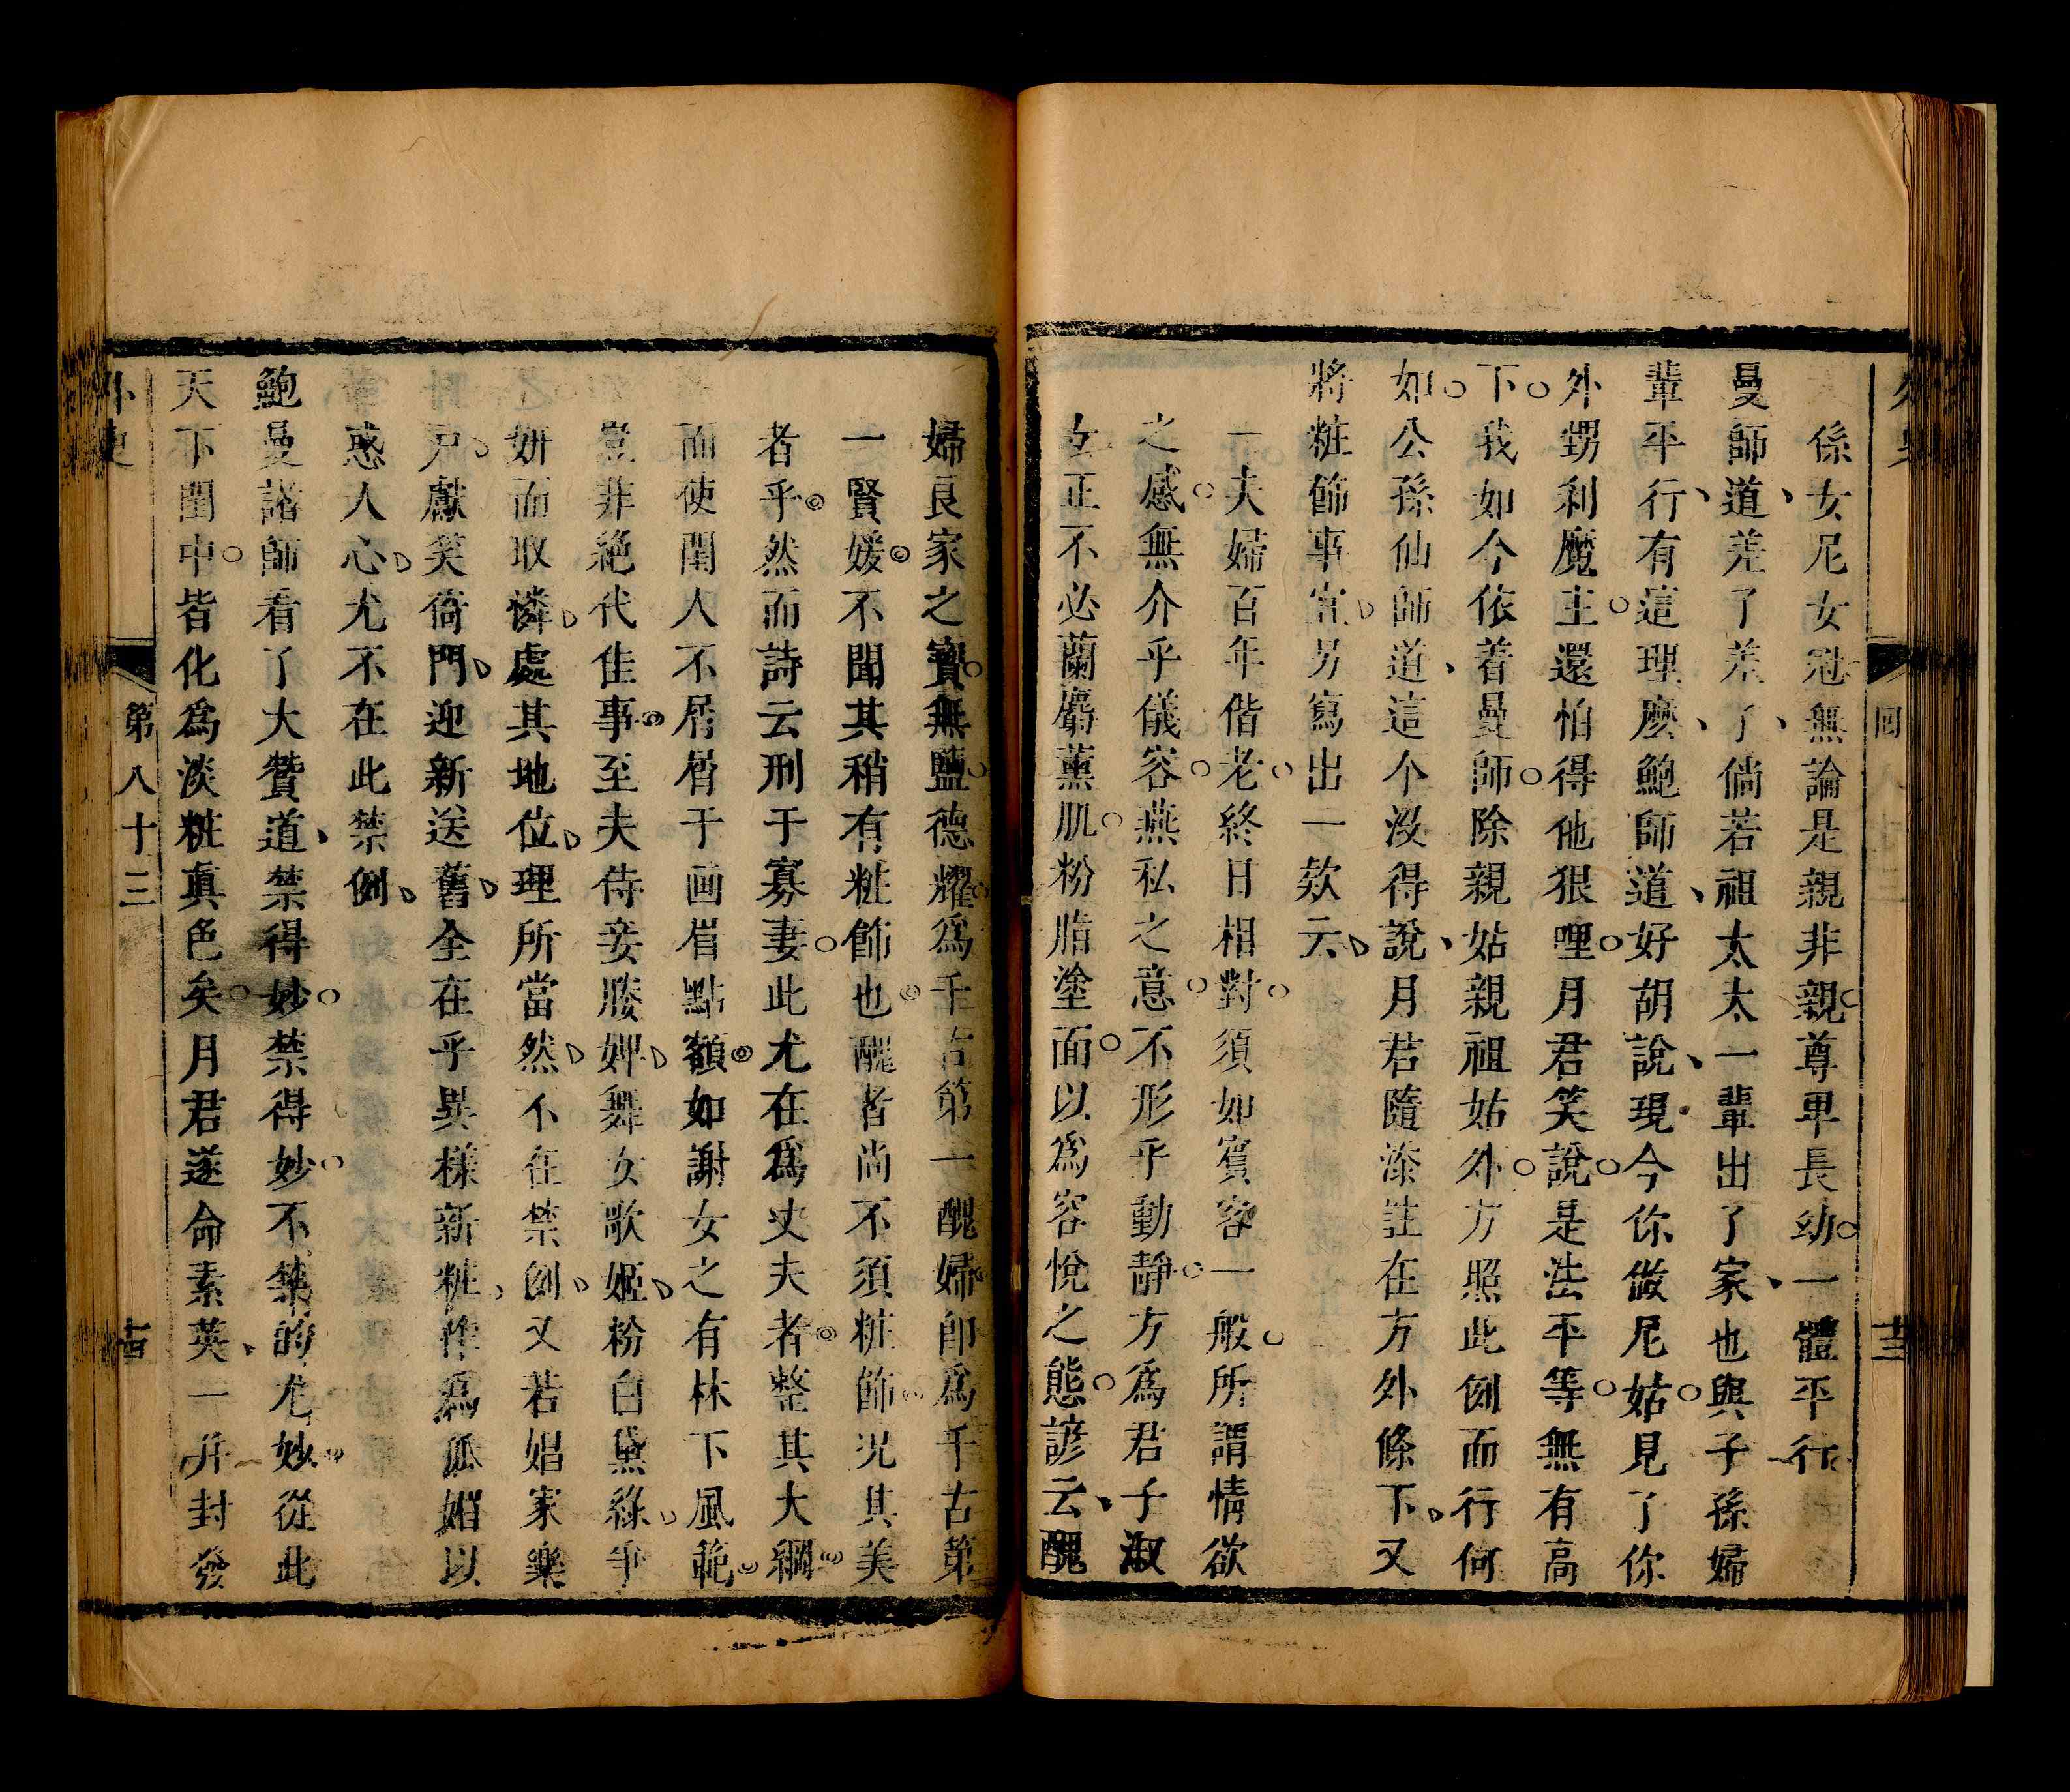 外史
回
係女尼女冠無論是親非親尊卑長幼一體平行
曼師道差了差了倘若祖太太一輩出了家也與子孫婦
輩平行有這理麽鮑師道好胡說現今你做尼姑見了你
外甥利魔主還怕得他狠哩月君笑說是法平等無有高
下我如今依着曼師除親姑親祖姑外方照此例而行何
如公孫仙師道這个没得說月君隨添註在方外條下又
將粧飾事宜另寫出一欵云
一夫婦百年偕老終日相對須如賓客一般所謂情欲
之感無介乎儀容燕私之意不形乎動靜方爲君子淑
女正不必蘭麝薰肌粉脂塗面以爲容悅之態諺云醜
婦良家之寳無鹽德耀爲千古第一醜婦卽爲千古第
一賢媛不聞其稍有粧飾也醜者尚不須粧飾况其美
者乎然而詩云刑于寡妻此尤在爲丈夫者整其大綱
而使閨人不屑屑于画眉點額如謝女之有林下風範
豈非絶代佳事至夫侍妾媵婢舞女歌姬粉白黛綠爭
妍而取憐處其地位理所當然不在禁例又若娼家樂
戸獻笑倚門迎新送舊全在乎異樣新粧作爲狐媚以
惑人心尤不在此禁例
鮑曼諸師看了大贊道禁得妙禁得妙不禁的尤妙從此
天下閨中皆化爲淡粧眞色矣月君遂命素英一并封發
外史
第八十三